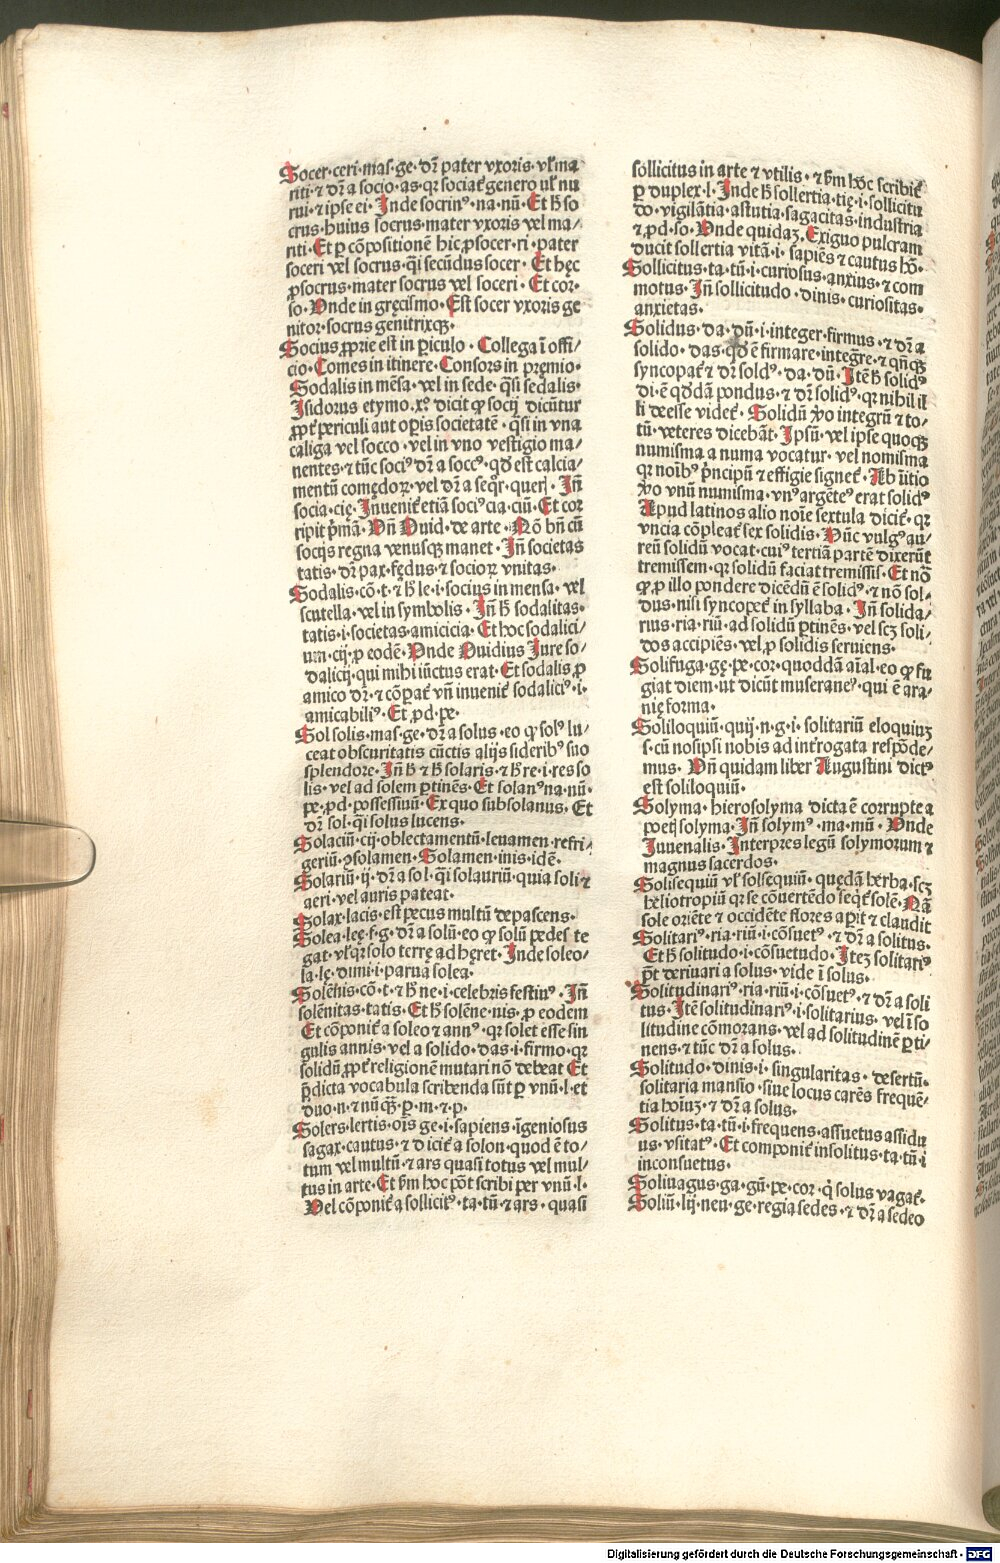 Socer·ceri·mas·ge·dr̄ pater vxoris·vl̕ ma
riti·⁊ dr̄ a socio·as·qr sociat̕ genero vl̕ nu
rui·⁊ ipse ei·Inde socrinꝰ·na·nū·Et h̄ so
crus·huius socrus·mater vxoris vel ma/
riti·Et ꝑ cōpositionē hic ꝓsocer·ri·pater
soceri vel socrus·q̄i secūdus socer·Et hęc
ꝓsocrus·mater socrus vel soceri·Et cor·
so·Vnde in gręcismo·Est socer vxoris ge
nitor·socrus genitrixqꝫ·
Socius ꝓprie est in ꝑiculo·Collega ī offi/
cio·Comes in itinere·Consors in pręmio·
Sodalis in mēsa·vel in sede·q̄si sedalis·
Isidorus etymo.x.ͦ dicit ꝙ socij dicūtur
ꝓpt̕ periculi aut oꝑis societatē·q̄si in vna
caliga vel socco·vel in vno vestigio ma/
nentes·⁊ tūc sociꝰ dr̄ a soccꝰ·qd̕ est calcia/
mentū comędoꝝ·vel dr̄ a seqr̄·querį·Iñ
socia·cię·Inuenit̕ etiā sociꝰ cia·ciū·Et cor
ripit p̄mā·Vñ Ouid·de arte·Nō bn̄ cū
socijs regna venusqꝫ manet·Iñ societas
tatis·dr̄ pax·fędus·⁊ socioꝝ vnitas·
Sodalis·cō·t·⁊ h̄ le·i·socius in mensa·vel
scutella·vel in symbolis·Iñ h̄ sodalitas·
tatis·i·societas·amicicia·Et hoc sodalici/
um·cij·ꝓ eodē·Vnde Ouidius Iure so/
dalicij·qui mihi iūctus erat·Et sodalis ꝓ
amico dr̄·⁊ cōpat̕ vñ inuenit̕ sodaliciꝰ·i·
amicabiliꝰ·Et ꝓd·pe·
Sol solis·mas·ge·dr̄ a solus·eo ꝙ solꝰ lu/
ceat obscuritatis cūctis alijs sideribꝰ suo
splendore·Iñ h̄ ⁊ h̄ solaris·⁊ h̄ re·i·res so
lis·vel ad solem ꝑtinēs·Et solanꝰ na·nū·
pe·ꝓd·possessiuū·Ex quo subsolanus·Et
dr̄ sol·q̄i solus lucens·
Solaciū·cij·oblectamentū·leuamen·refri/
geriū·ꝯsolamen·Solamen·inis·idē·
Solariū·ij·dr̄ a sol·q̄i solauriū·quia soli ⁊
aeri·vel auris pateat·
Solax·lacis·est pecus multū depascens·
Solea·leę·f·g·dr̄ a solū·eo ꝙ solū pedes te
gat·vl̕ qr̄ solo terrę ad hęret·Inde soleo/
la·lę·dimi·i·parua solea·
Solēnis·cō·t·⁊ h̄ ne·i·celebris festiuꝰ·Iñ
solēnitas·tatis·Et h̄ solēne·nis·ꝓ eodem
Et cōponit̕ a soleo ⁊ annꝰ·qr solet esse sin
gulis annis·vel a solido·das·i·firmo·qr
solidū ꝓpt̕ religionē mutari nō debeat Et
p̄dicta vocabula scribenda sūt ꝑ vnū·l·et
duo·n·⁊ nūqꝫ·ꝑ·m·⁊·p·
Solers·lertis·oīs ge·i·sapiens·īgeniosus
sagax·cautus·⁊ dicit̕ a solon·quod ē to/
tum vel multū·⁊ ars quasi totus vel mul/
tus in arte·Et s̄m hoc pōt scribi per vnū·l·
Vel cōponit̕ a sollicitꝰ·ta·tū·⁊ ars·quasi
sollicitus in arte ⁊ vtilis·⁊ s̄m hōc scribit̕
ꝑ duplex·l·Inde h̄ sollertia·tię·i·sollicitu
do·vigilātia·astutia·sagacitas·industria
⁊ ꝓd·so·Vnde quidaꝫ·Exiguo pulcram
ducit sollertia vitā·i·sapiēs ⁊ cautus hō·
Sollicitus·ta·tū·i·curiosus·anxius·⁊ com
motus·Iñ sollicitudo·dinis·curiositas·
anxietas·
Solidus·da·dū·i·integer·firmus·⁊ dr̄ a
solido·das·qd̕ ē firmare·integre·⁊ qn̄qꝫ
syncopat̕ ⁊ dr̄ soldꝰ·da·dū·Itē h̄ solidꝰ
di·ē qd̕dā pondus·⁊ dr̄ solidꝰ·qr nihil il
li deesse videt̕·Solidū v̕o integrū ⁊ to/
tū·veteres dicebāt·Ipsū·vel ipse quoqꝫ
numisma a numa vocatur·vel nomisma
qr noībꝰ p̄ncipū ⁊ effigie signet̕·Ab ītio
v̕o vnū numisma·vnꝰ argēteꝰ erat solidꝰ
Apud latinos alio noīe sextula dicit̕·qr
vncia cōpleat̕ sex solidis·Vūc vulgꝰ au/
reū solidū vocat·cuiꝰ tertiā partē dixerūt
tremissem·qr solidū faciat tremissis·Et nō
ꝙ ꝓ illo pondere dicēdū ē solidꝰ·⁊ nō sol/
dus·nisi syncopet̕ in syllaba·Iñ solida/
rius·ria·riū·ad solidū ꝑtinēs·vel scꝫ soli/
dos accipiēs·vel ꝓ solidis seruiens·
Solifuga·gę·pe·cor·quoddā aīal·eo ꝙ fu
giat diem·ut dicūt museraneꝰ·qui ē ara/
nię forma·
Soliloquiū·quij·n·g·i·solitariū eloquiuꝫ
s·cū nosipsi nobis ad introgata respōde/
mus·Vñ quidam liber Augustini dictꝰ
est soliloquiū·
Solyma·hierosolyma dicta ē corrupte a
poetį solyma·Iñ solymꝰ·ma·mū·Vnde
Iuuenalis·Interpres legū solymorum ⁊
magnus sacerdos·
Solisequiū vl̕ solsequiū·quędā herba·scꝫ
heliotropiū qr se cōuertēdo seqt̕ solē·Nā
sole oriēte ⁊ occidēte flores aꝑit ⁊ claudit
Solitariꝰ·ria·riū·i·cōsuetꝰ·⁊ dr̄ a solitus·
Et h̄ solitudo·i·cōsuetudo·Iteꝫ solitariꝰ
pōt deriuari a solus·vide ī solus·
Solitudinariꝰ·ria·riū·i·cōsuetꝰ·⁊ dr̄ a soli
tus·Itē solitudinariꝰ·i·solitarius·vel ī so
litudine cōmorans·vel ad solitudinē ꝑti/
nens·⁊ tūc dr̄ a solus·
Solitudo·dinis·i·singularitas·desertū·
solitaria mansio·siue locus carēs frequē/
tia hoīuꝫ·⁊ dr̄ a solus·
Solitus·ta·tū·i·frequens·assuetus·assidu
us·vsitatꝰ·Et componit̕ insolitus·ta·tū·i
inconsuetus·
Soliuagus·ga·gū·pe·cor·q̄ solus vagat̕·
Soliū·lij·neu·ge·regia sedes·⁊ dr̄ a sedeo
Digitalisierung gefördert durch die Deutsche Forschungsgemeinschaft - DFG